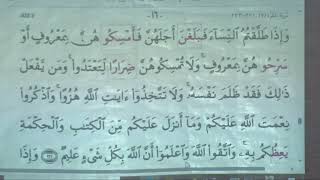 ١٦٠
وَإِذَا طَلَّقْتُمُ النِّسَاءَ فَبَلَغْنَ أَجَلَهُنَّ فَأَمْسِكُوهُنَّ بِمَعْرُوفٍ أَوْ
سَرِّحُوهُنَّ بِمَعْرُوفٍ وَلَا تُمْسِكُوهُنَّ ضِرَارًا لِّتَعْتَدُوا وَمَن يَفْعَلْ
ذَٰلِكَ فَقَدْ ظَلَمَ نَفْسَهُ وَلَا تَتَّخِذُوا آيَاتِ اللَّهِ هُزُوًا وَاذْكُرُوا
نِعْمَتَ اللَّهِ عَلَيْكُمْ وَمَا أَنزَلَ عَلَيْكُم مِّنَ الْكِتَابِ وَالْحِكْمَةِ
يَعِظُكُم بِهِ وَاتَّقُوا اللَّهَ وَاعْلَمُوا أَنَّ اللَّهَ بِكُلِّ شَيْءٍ عَلِيمٌ وَإِذَا